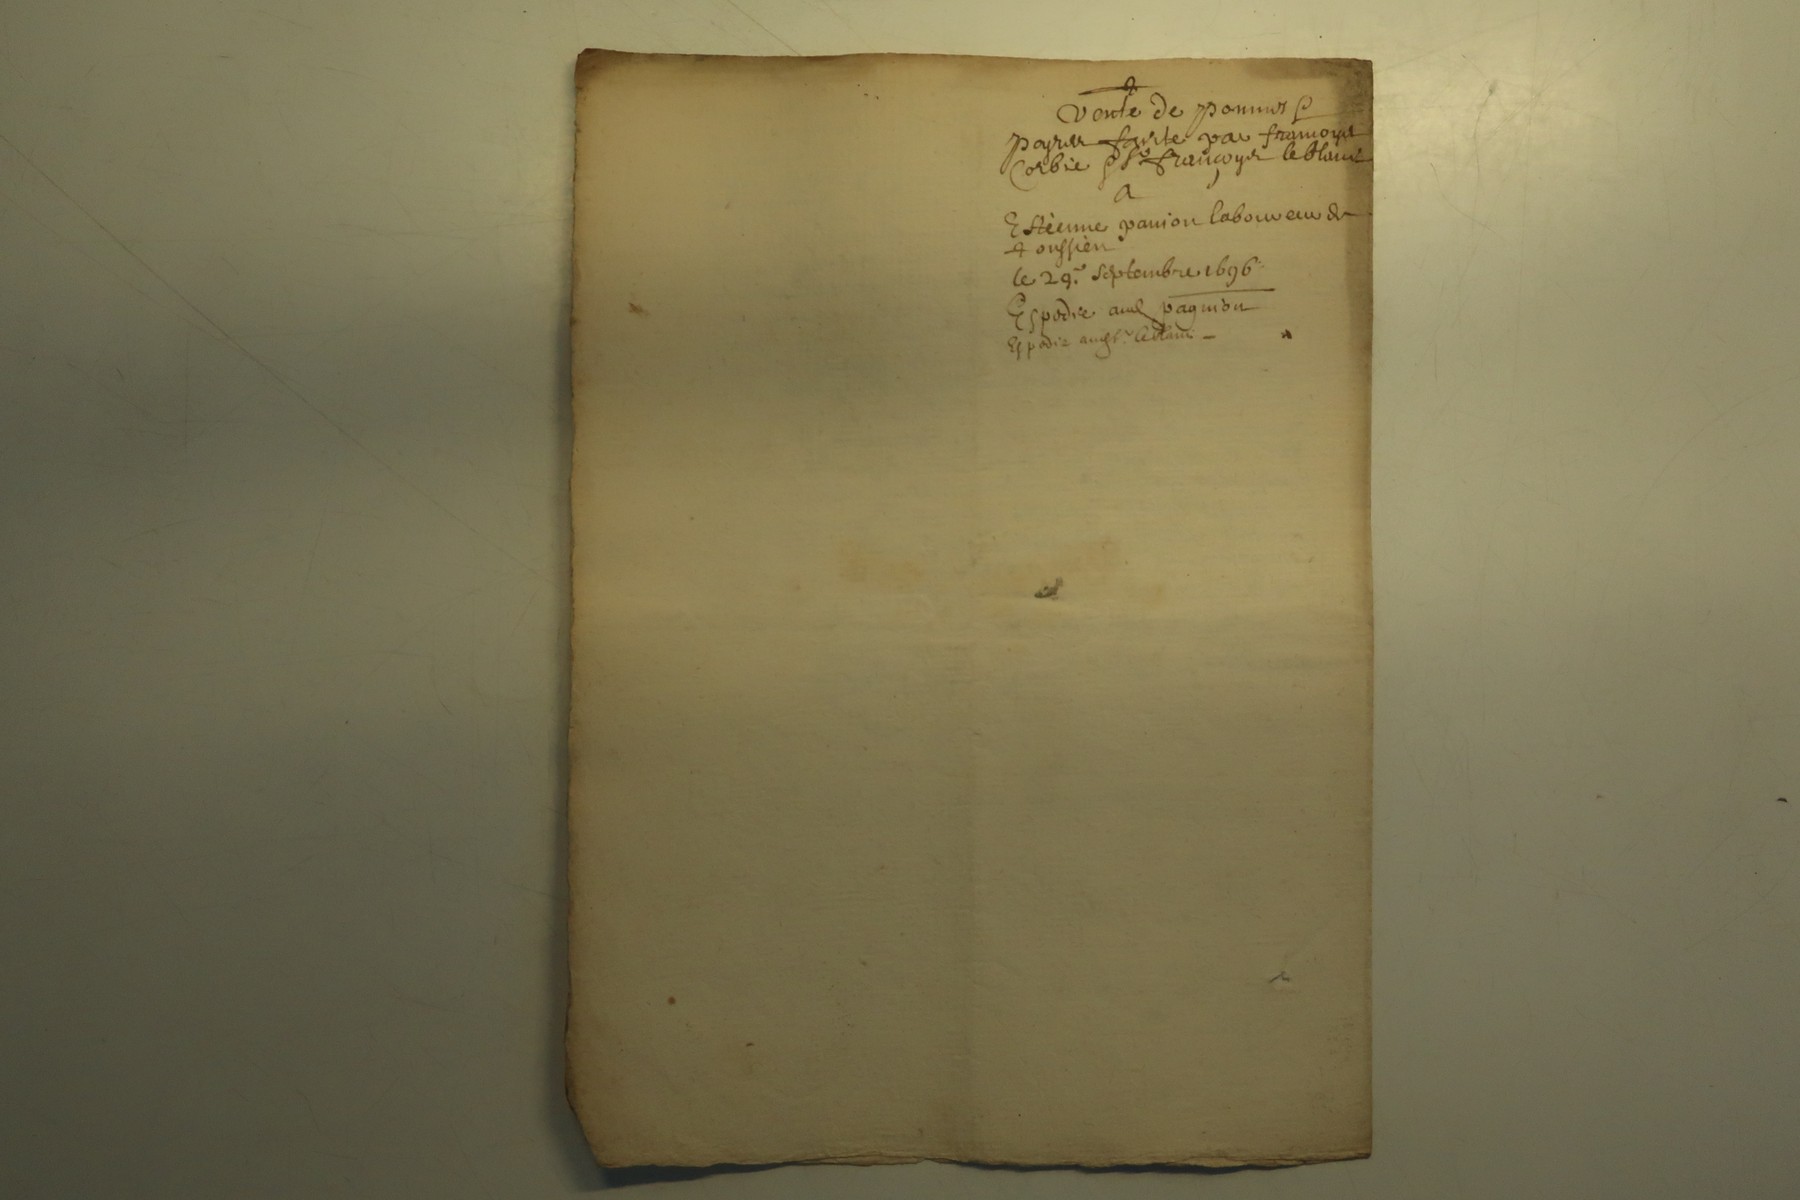 Vente de pommes &
poyres faitte par francoyes
Corbie & Sr françoyes leblanc
A
Estienne panion laboureur de
Toussien
le 29e Septembre 1696
Expedie aud pagnion
Expedie audsr leblanc